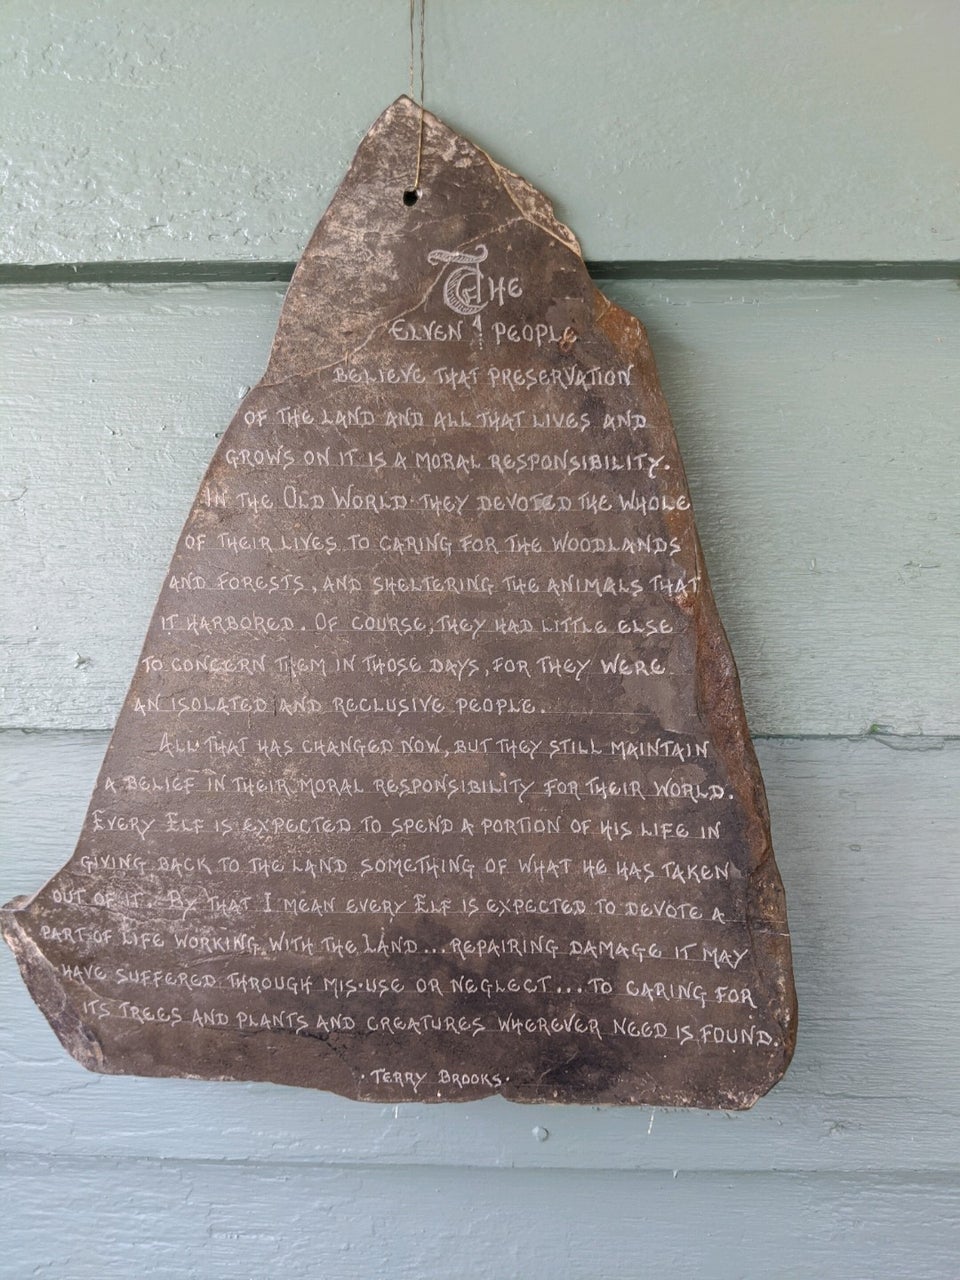 THE
ELVEN PEOPLE
BELIEVE THAT PRESERVATION
OF THE LAND AND ALL THAT LIVES AND
GROWS ON IT IS A MORAL RESPONSIBILITY.
IN THE OLD WORLD THEY DEVOTED THE WHOLE
OF THEIR LIVES TO CARING FOR THE WOODLANDS
AND FORESTS, AND SHELTERING THE ANIMALS THAT
IT HARBORED. OF COURSE, THEY HAD LITTLE ELSE
TO CONCERN THEM IN THOSE DAYS, FOR THEY WERE
AN ISOLATED AND RECLUSIVE PEOPLE.
ALL THAT HAS CHANGED NOW, BUT THEY STILL MAINTAIN
A BELIEF IN THEIR MORAL RESPONSIBILITY FOR THEIR WORLD.
EVERY ELF IS EXPECTED TO SPEND A PORTION OF HIS LIFE IN
GIVING BACK TO THE LAND SOMETHING OF WHAT HE HAS TAKEN
OUT OF IT. BY THAT I MEAN EVERY ELF IS EXPECTED TO DEVOTE A
PART OF LIFE WORKING WITH THE LAND... REPAIRING DAMAGE IT MAY
HAVE SUFFERED THROUGH MIS-USE OR NEGLECT... TO CARING FOR
ITS TREES AND PLANTS AND CREATURES WHEREVER NEED IS FOUND.
·TERRY BROOKS·